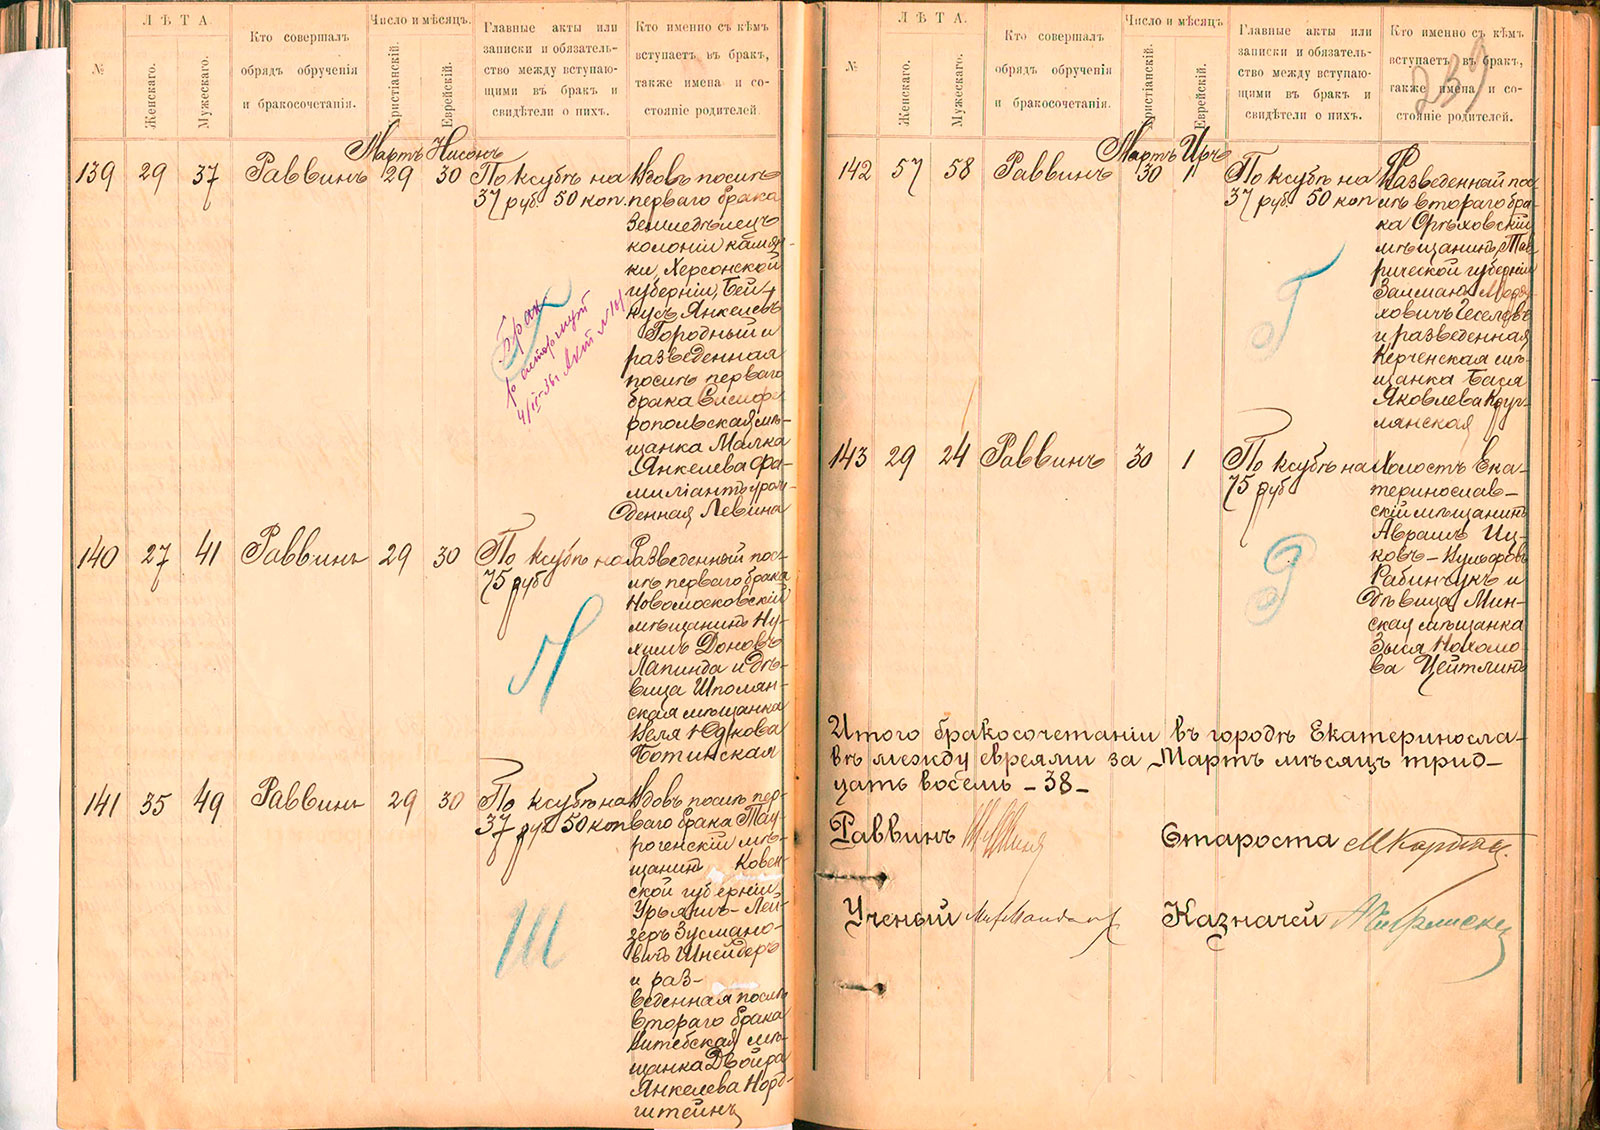 №
ЛѢТА.
Женскаго.
Мужескаго.
Кто совершалъ
обрядъ обрученія
и бракосочетанія.
Число и мѣсяцъ.
Христіанскій.
Еврейскій.
Главные акты или
записки и обязатель-
ство между вступаю-
щими въ бракъ и
свидѣтели о нихъ.
Кто именно съ кѣмъ
вступаетъ въ бракъ,
также имена и со-
стояніе родителей.
Мартъ Нисонъ
139 29 37 Раввинъ 29 30
По ксубѣ на
37 руб. 50 коп.
Вдовъ послѣ
перваго брака
Земледѣлецъ
колоніи Камян-
ки, Херсонской
губерніи, Бей-
нусъ Янкелевъ
Городный и
разведенная
послѣ перваго
брака Симфе-
ропольская мѣ-
щанка Малка
Янкелева Фа-
миліантъ урож-
денная Левина
Брак
расторгнут
140 27 41 Раввинъ 29 30
По ксубѣ на
75 руб
Разведенный пос-
лѣ перваго брака
Новомосковскій
мѣщанинъ Ну-
химъ Доновъ
Лапида и дѣ-
вица Шполян-
ская мѣщанка
Неля Юдкова
Ботинская
Н
141 35 49 Раввинъ 29 30
По ксубѣ на
37 руб 50 коп
Вдовъ послѣ пер-
ваго брака Тау-
рогенскій мѣ-
щанинъ Ковен-
ской губерніи
Урьяшъ-Лей-
зеръ Зусмано-
вичъ Шнейдеръ
и раз-
веденная послѣ
второго брака
Витебская мѣ-
щанка Двойра
Янкелева Норд-
штейнъ
Ш
239
№
ЛѢТА.
Женскаго.
Мужескаго.
Кто совершалъ
обрядъ обрученія
и бракосочетанія.
Число и мѣсяцъ
Христіанскій.
Еврейскій.
Главные акты или
записки и обязатель-
ство между вступаю-
щими въ бракъ и
свидѣтели о нихъ.
Кто именно съ кѣмъ
вступаетъ въ бракъ,
также имена и со-
стояніе родителей.
Мартъ Иръ
142 57 58 Раввинъ 30 1
По ксубѣ на
37 руб. 50 коп
Разведенный пос-
лѣ втораго бра-
ка Орѣховскій
мѣщанинъ, Тав-
рической губерніи
Залманъ Морду-
ховичъ Чеселевъ
и разведенная
Керченская мѣ-
щанка Бася
Яковлева Круг-
лянская
Г
143 29 24 Раввинъ 30 1
По ксубѣ на
75 руб
Холостъ Ека-
теринослав-
скій мѣщанинъ
Авраамъ Иц-
ковъ-Вульфовъ
Рабинчукъ и
дѣвица Мин-
ская мѣщанка
Зыся Нохомо-
ва Цейтлинъ
Р
Итого бракосочетаній въ городѣ Екатериносла-
вѣ между евреями за Мартъ мѣсяцъ трид-
цать восемь -38-
Раввинъ
Староста
Ученый
Казначей